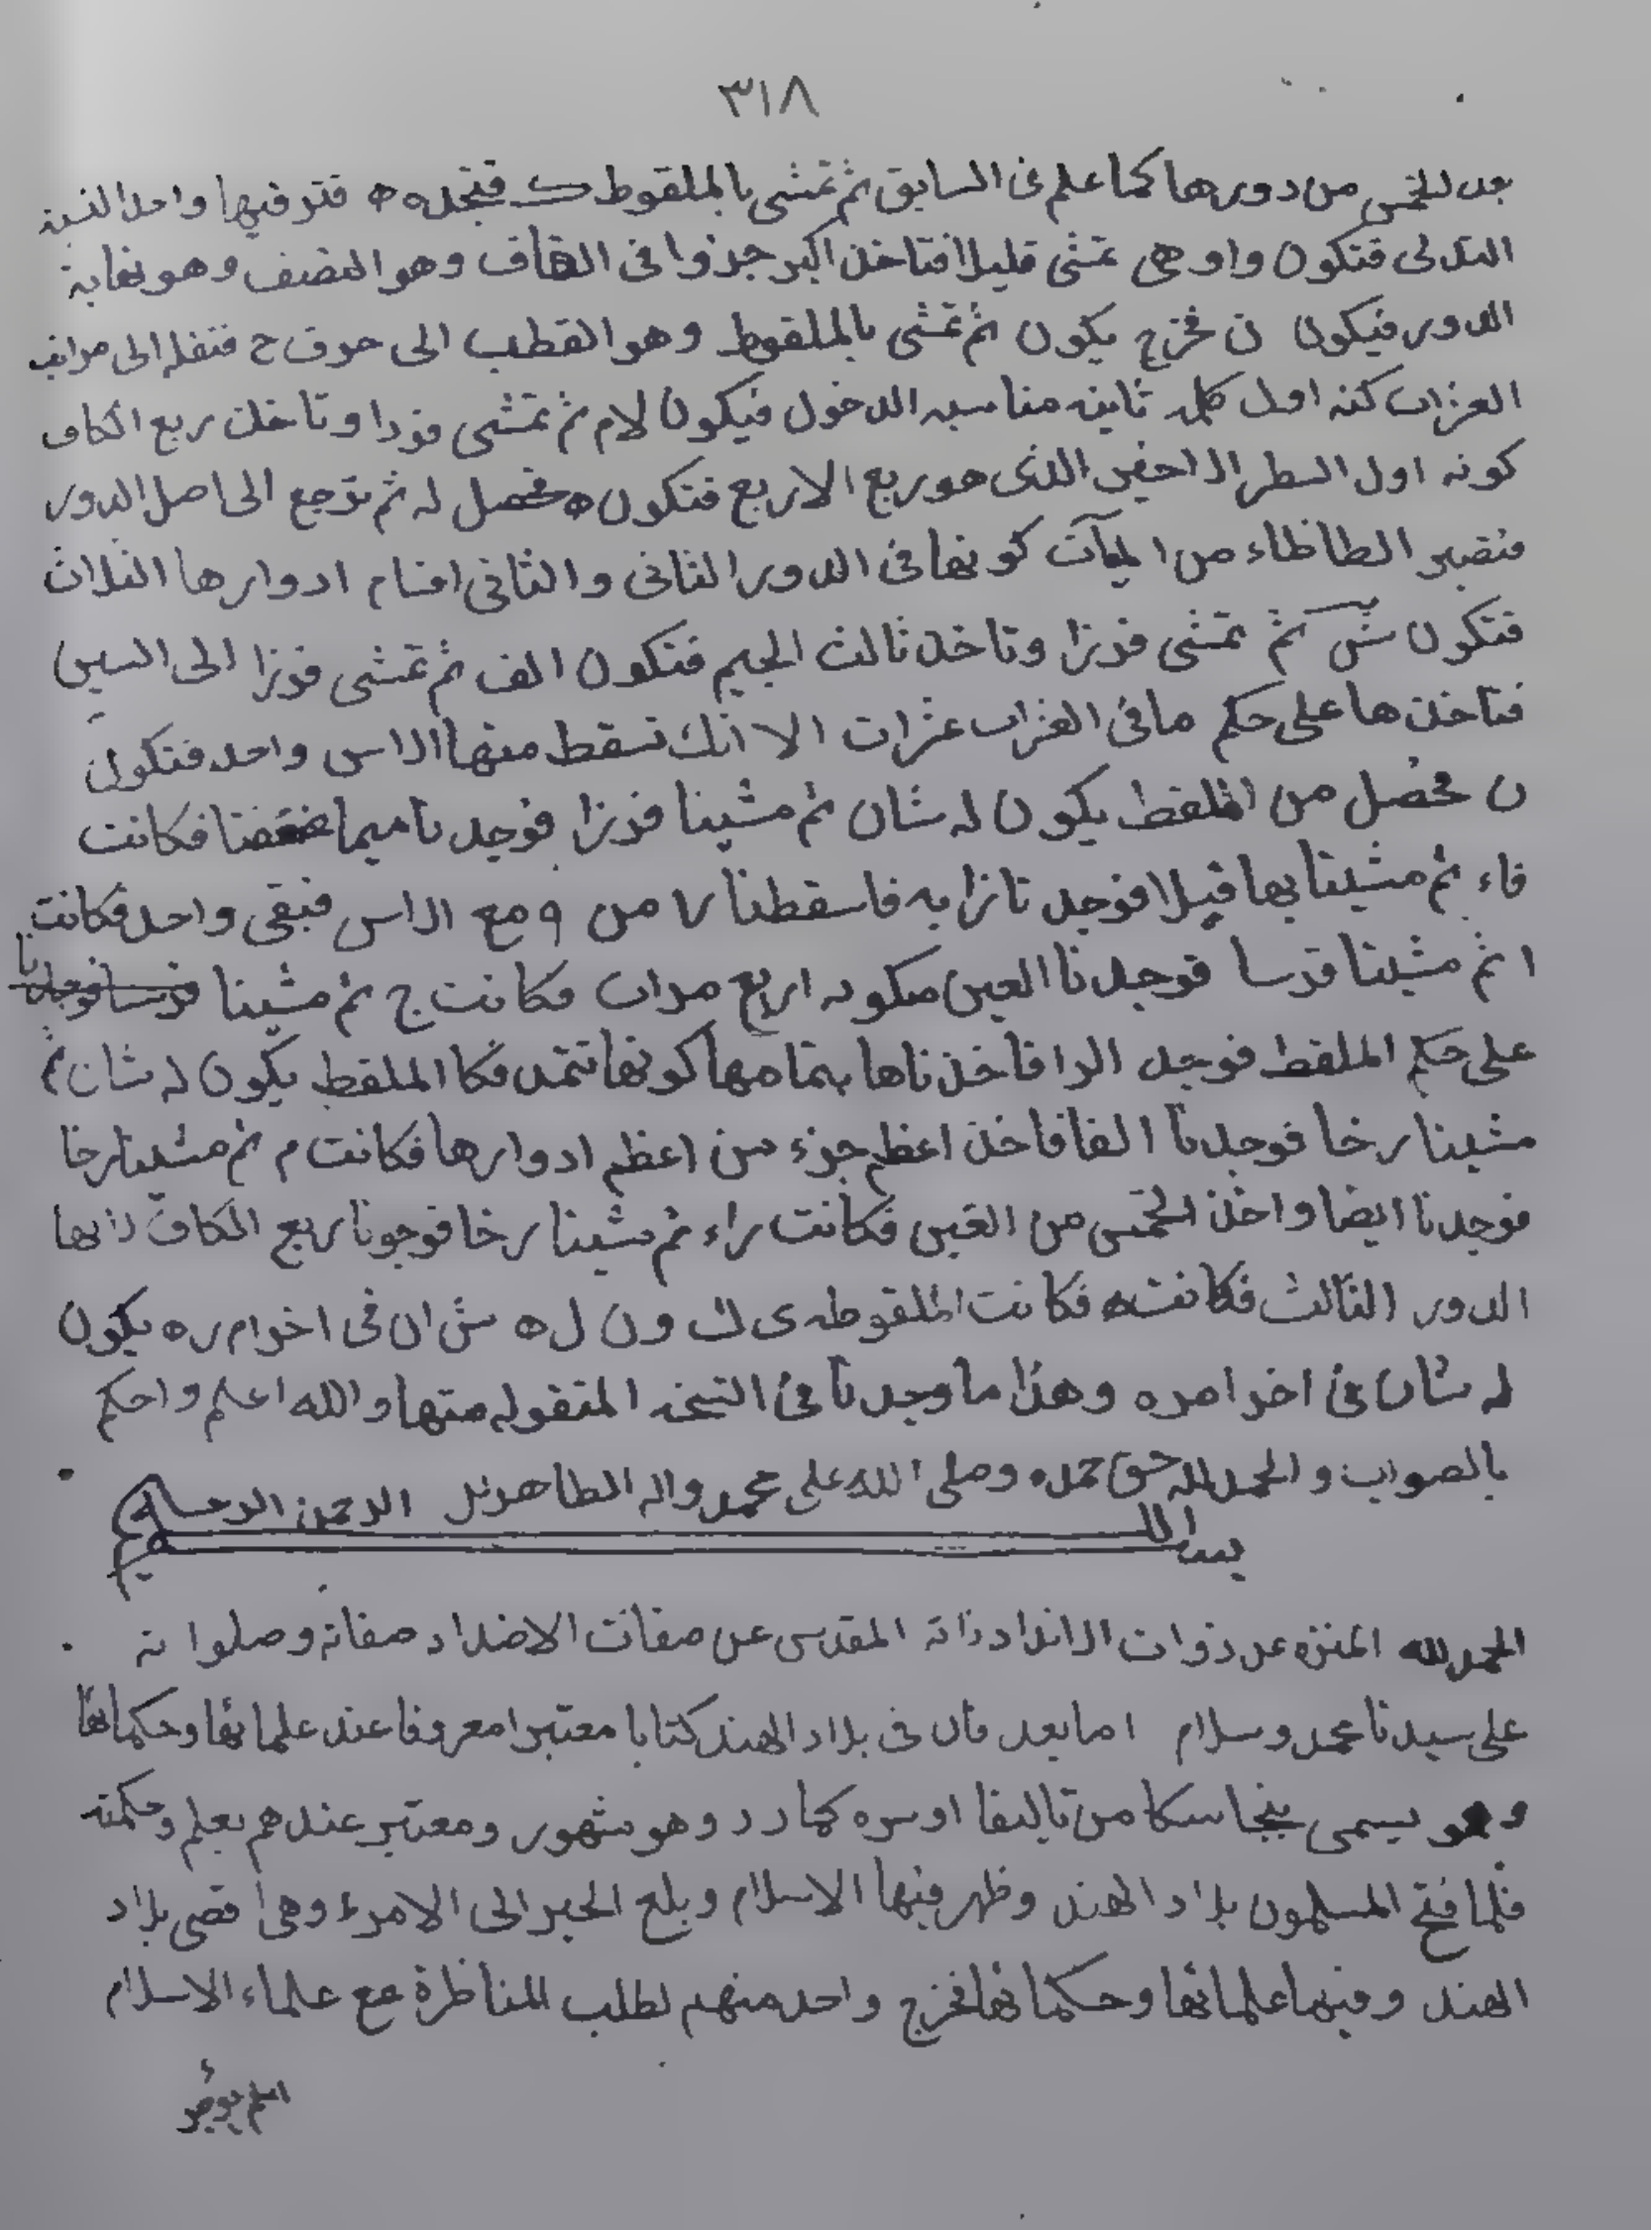 ٣١٨
من دورها كما علم فى السابق ثم تمشى بالملقوط فتجده ه فترقيها واحد النسبة
فتكون واو وهى تمشى قليلا فتاخذ اكبر جزوا فى القاف وهو النصف وهو نهاية
الدور فيكون ن فخرج يكون ثم تمشى بالملقوط وهو القطب الى حرف ح فتنقله الى مراتب
اول كلمه ثانيه مناسبه الدخول فيكون لام ثم تمشى فردا وتاخذ ربع الكاف
كونه اول السطر الاخير الذى هو ربع الاربع فتكون ه فحصل له ثم ترجع الى اصل الدور
فتصير الطا ظاء من المآت كونها فى الدور الثانى والثانى اقسام ادوارها الثلاث
فتكون ش ثم تمشى فرزا وتاخذ ثالث الجيم فتكون الف ثم تمشى فرزا الى السين
فتاخذها على حكم ما فى عشرات الا انك تسقط منها الاس واحد فتكون
ن فحصل من الملقط يكون له شان ثم مشينا فرزا فوجدنا ميما فكانت
فاء ثم مشينا بها فيلا فوجدنا فاسقطنا من ٩ مع الاس فبقى واحد فكانت
ا ثم مشينا فرسا فوجدنا العين اربع مرات فكانت خ ثم مشينا فرسا فوجدنا
على حكم الملقط فوجد الرا فاخذناها بتمامها كونها الملقط يكون له شان ثم
مشينا رخا فوجدنا الفا فاخذ اعظم جزء من اعظم ادوارها فكانت م ثم مشينا رخا
فوجدنا ايضا واخذ الخمس من فكانت راء ثم مشينا رخا ربع الكاف لانها
الدور الثالث فكانت ه فكانت الملقوطه ى ك و ن ل ه ش ان فى اخر ام ر ه يكون
له شان فى اخر امره وهذا ما وجدنا فى النسخه المنقوله منها والله اعلم واحكم
بالصواب والحمد لله حق حمده وصلى الله على محمد واله الطاهرين
بسم الله الرحمن الرحيم
الحمد لله المنزه عن ذوات الانداد ذاته المقدس عن صفات الاضداد صفاته وصلواته
على سيدنا محمد وسلام اما بعد فان فى بلاد الهند كتابا معتبرا معروفا عند علمائها وحكمائها
وهو يسمى وهو مشهور ومعتبر عندهم بعلم وحكمته
فلما فتح المسلمون بلاد الهند وظهر فيها الاسلام وبلغ الخبر الى وهى اقصى بلاد
الهند وفيها علمائها وحكمائها فخرج واحد منهم لطلب المناظرة مع علماء الاسلام